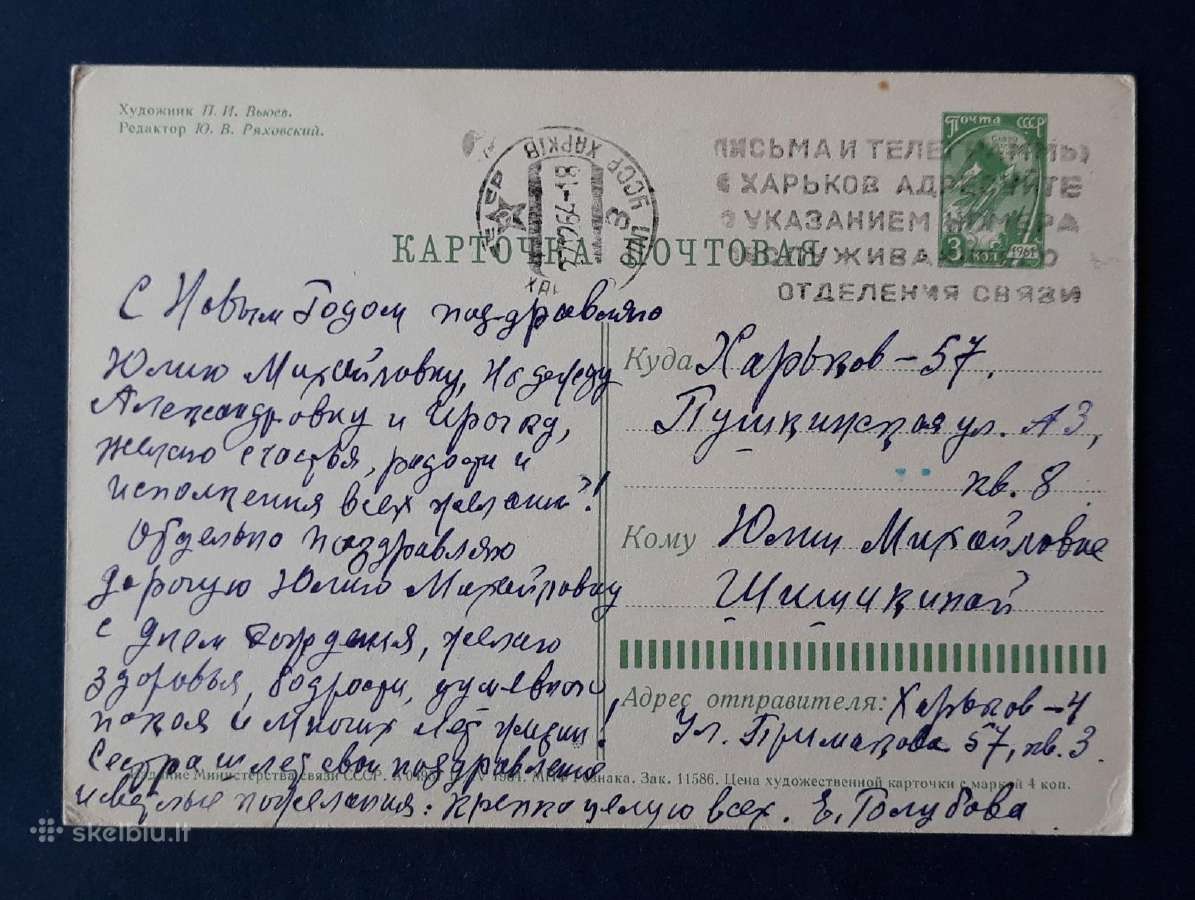 Художник П. И. Вьюев.
Редактор Ю. В. Ряховский.
Почта СССР
3 коп 1961
УССР ХАРКІВ
ПИСЬМА И ТЕЛЕГРАММЫ
В ХАРЬКОВ АДРЕСУЙТЕ
С УКАЗАНИЕМ НОМЕРА
ОБСЛУЖИВАЮЩЕГО
ОТДЕЛЕНИЯ СВЯЗИ
КАРТОЧКА ПОЧТОВАЯ
С Новым Годом поздравляю
Юлию Михайловну, Надежду
Александровну и Ирочку,
желаю счастья, радости и
исполнения всех желаний!
Отдельно поздравляю
дорогую Юлию Михайловну
с днем рождения, желаю
здоровья, бодрости, душевного
покоя и многих лет жизни!
Сестра шлет свои поздравления
и пожелания: Крепко целую всех. Е. Голубова
Куда Харьков – 57.
Пушкинская ул.
кв. 8
Кому Юлии Михайловне
Шишикиной
Адрес отправителя: Харьков – 4
Ул. Примакова 57, кв. 3
Издание Министерства связи СССР. 1961. МПФ Гознака. Зак. 11586. Цена художественной карточки с маркой 4 коп.
skelbiu.lt